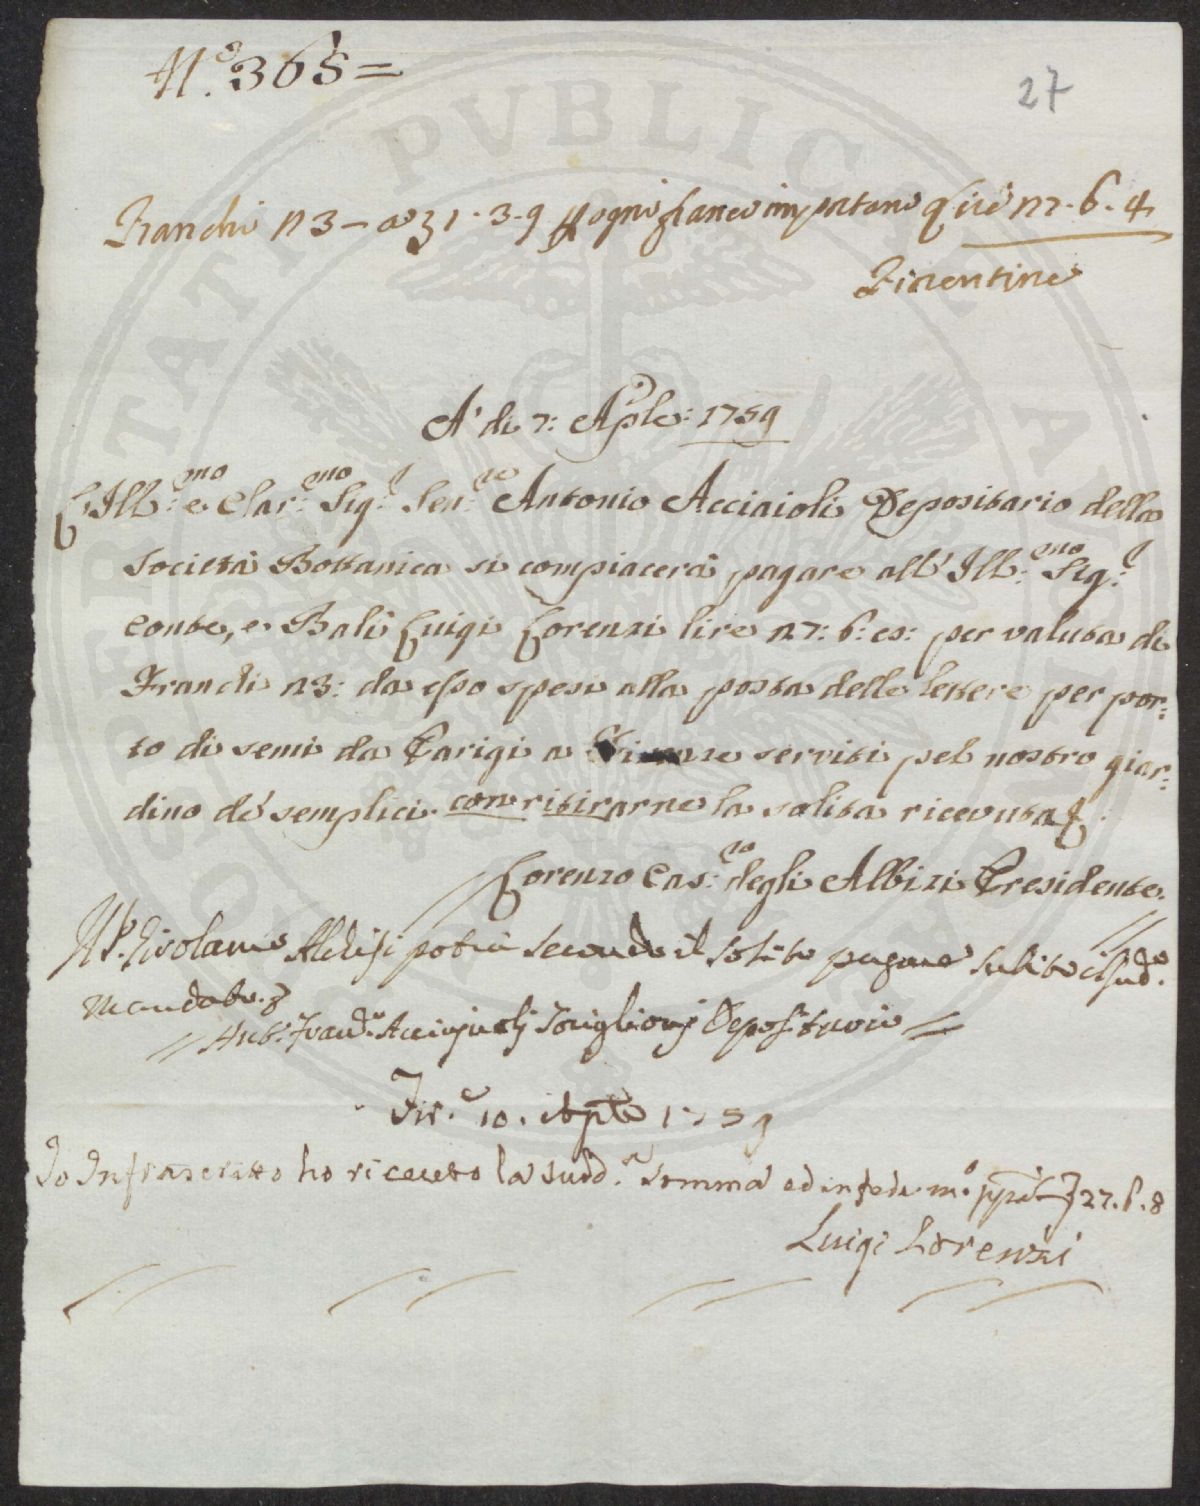 N.o 365=
27
Franchi n 3 - a £ 1.3.9 p ogni franco importano lire 27.6.4
Fiorentine
A' di 7: Aple: 1759
L'Ill:mo e Clar:mo Sig:r Sen:re Antonio Acciaioli Depositario della
Società Bottanica si compiacerà pagare all' Ill:mo Sig:r
Conte, e Balì Luigi Lorenzi lire 27: 6: 8: per valuta di
Franchi 23: da esso spesi alla posta delle lettere per por:
to di semi da Parigi a Firenze serviti pel nostro giar:
dino de' semplici. con ritirarne la solita ricevuta
Lorenzo Cas:ro degli Albizi Presidente.
potrà secondo il solito pagare subito il sud.o
Mandato.
Ant.o Acciajuoli Depositario
Fir.e 10. Aple 1759
Io Infrascritto ho riceuto la sudd.a somma ed in fede m.o pp.a £ 27.6.8
Luigi Lorenzi
PVBLICAE VTILITATI